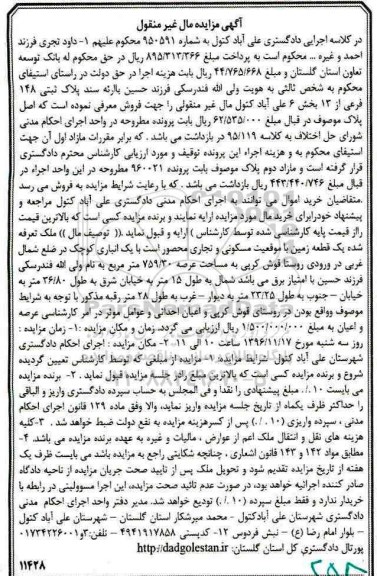 آگهی مزایده مال غیر منقول
در کلاسه اجرایی دادگستری علی آباد کتول به شماره ۹۵۰۵۹۱ محکوم علیهم ۱- داود تجری فرزند
احمد و غیره ... محکوم است به پرداخت مبلغ ۸۹۵/۳۱۳/۳۶۶ ریال در حق محکوم له بانک توسعه
تعاون استان گلستان و مبلغ ۴۴/۷۶۵/۶۶۸ ریال بابت هزینه اجرا در حق دولت در راستای استیفای
محکوم به شخص ثالثی به هویت ولی الله فندرسکی فرزند حسین باارئه سند پلاک ثبتی ۱۴۸
فرعی از ۱۳ بخش ۶ علی آباد کتول مال غیر منقولی را جهت فروش معرفی نموده است که اصل
پلاک موصوف در قبال مبلغ ۶۲/۵۳۵/۰۰۰ ریال بابت پرونده مطروحه در واحد اجرای احکام مدنی
شورای حل اختلاف به کلاسه ۹۵/۱۱۹ در بازداشت می باشد . که برابر مقررات مازاد اول آن جهت
استیفای محکوم به و هزینه اجراء این پرونده توقیف و مورد ارزیابی کارشناس محترم دادگستری
قرار گرفته است و مازاد دوم پلاک موصوف بابت پرونده ۹۶۰۰۲۱ مطروحه در این واحد اجراء در
قبال مبلغ ۴۴۳/۴۴۰/۷۴۶ ریال بازداشت می باشد . که با رعایت شرایط مزایده به فروش می رسد
.متقاضیان خرید اموال می توانند به اجرای احکام مدنی دادگستری علی آباد کتول مراجعه و
پیشنهاد خودرابرای خرید مال مورد مزایده ارایه نمایند و برنده مزایده کسی است که بالاترین قیمت
رااز قیمت پایه کارشناسی شده توسط کارشناس ) ارایه و قبول نماید .(( توصیف مال )) ملک تعرفه
شده یک قطعه زمین با موقعیت مسکونی و تجاری محصور است با یک انباری کوچک در ضلع شمال
غربی در ورودی روستا قوش کرپی به مساحت عرصه ۷۵۹/۲۰ متر مربع به نام ولی الله فندرسکی
فرزند حسین با امتیاز برق می باشد شمال به طول ۱۵ متر به خیابان شرق به طول ۳۶/۸۰ متر به
خیابان – جنوب به طول ۲۳/۲۵ متر به دیوار – غرب به طول ۲۸ متر رقبه مذکور با توجه به شرایط
موصوف وواقع بودن در روستای قوش کرپی و اعیان احداثی و عوامل موثر در امر کارشناسی عرصه
و اعیان به مبلغ ۱/۵۰۰/۰۰۰/۰۰۰ ریال ارزیابی می گردد. زمان و مکان مزایده : ۱- زمان مزایده :
روز سه شنبه مورخ ۱۳۹۶/۱۱/۱۷ ساعت ۱۰ الی ۱۱ ۲- مکان مزایده : اجرای احکام دادگستری
شهرستان علی آباد کتول شرایط مزایده: ۱- مزایده از مبلغی که توسط کارشناس تعیین گردیده
شروع و برنده مزایده کسی است که بالاترین مبلغ رادر جلسه مزایده قبول نماید . ۲- برنده مزایده
می بایست ۱۰ ./. مبلغ پیشنهادی را نقدا و فی المجلس به حساب سپرده دادگستری واریز و الباقی
را حداکثر ظرف یکماه از تاریخ جلسه مزایده واریز نماید، والا وفق ماده ۱۲۹ قانون اجرای احکام
مدنی ، سپرده واریزی (۱۰./.) پس از کسرهزینه مزایده به نفع دولت ضبط خواهد شد . ۳-کلیه
هزینه های نقل و انتقال ملک اعم از عوارض ، مالیات و غیره به عهده برنده مزایده می باشد. ۴-
مطابق مواد ۱۴۲ و ۱۴۳ قانون اشعاری ، چنانچه شکایتی راجع به مزایده باشد می بایست ظرف یک
هفته از تاریخ مزایده تقدیم شود و تحویل ملک پس از تایید صحت جریان مزایده از ناحیه دادگاه
صادر کننده اجرائیه خواهد بود، در صورت عدم تائید صحت مزایده، این اجرا مسوولیتی در رابطه با
خریدار ندارد و فقط مبلغ سپرده (۱۰ ./.) تودیع خواهد شد. مدیر دفتر واحد اجرای احکام مدنی
دادگستری شهرستان علی آبادکتول – محمد میرشکار استان گلستان – شهرستان علی آباد کتول
– بلوار امام رضا (ع) – نبش فردوس ۱۲- کدپستی ۴۹۴۱۹۱۷۸۵۸ – تلفن:۳و۰۱۷۳۴۲۲۶۰۰۱
پورتال دادگستری کل استان گلستان: http://dadgolestan.ir
۱۱۴۲۸